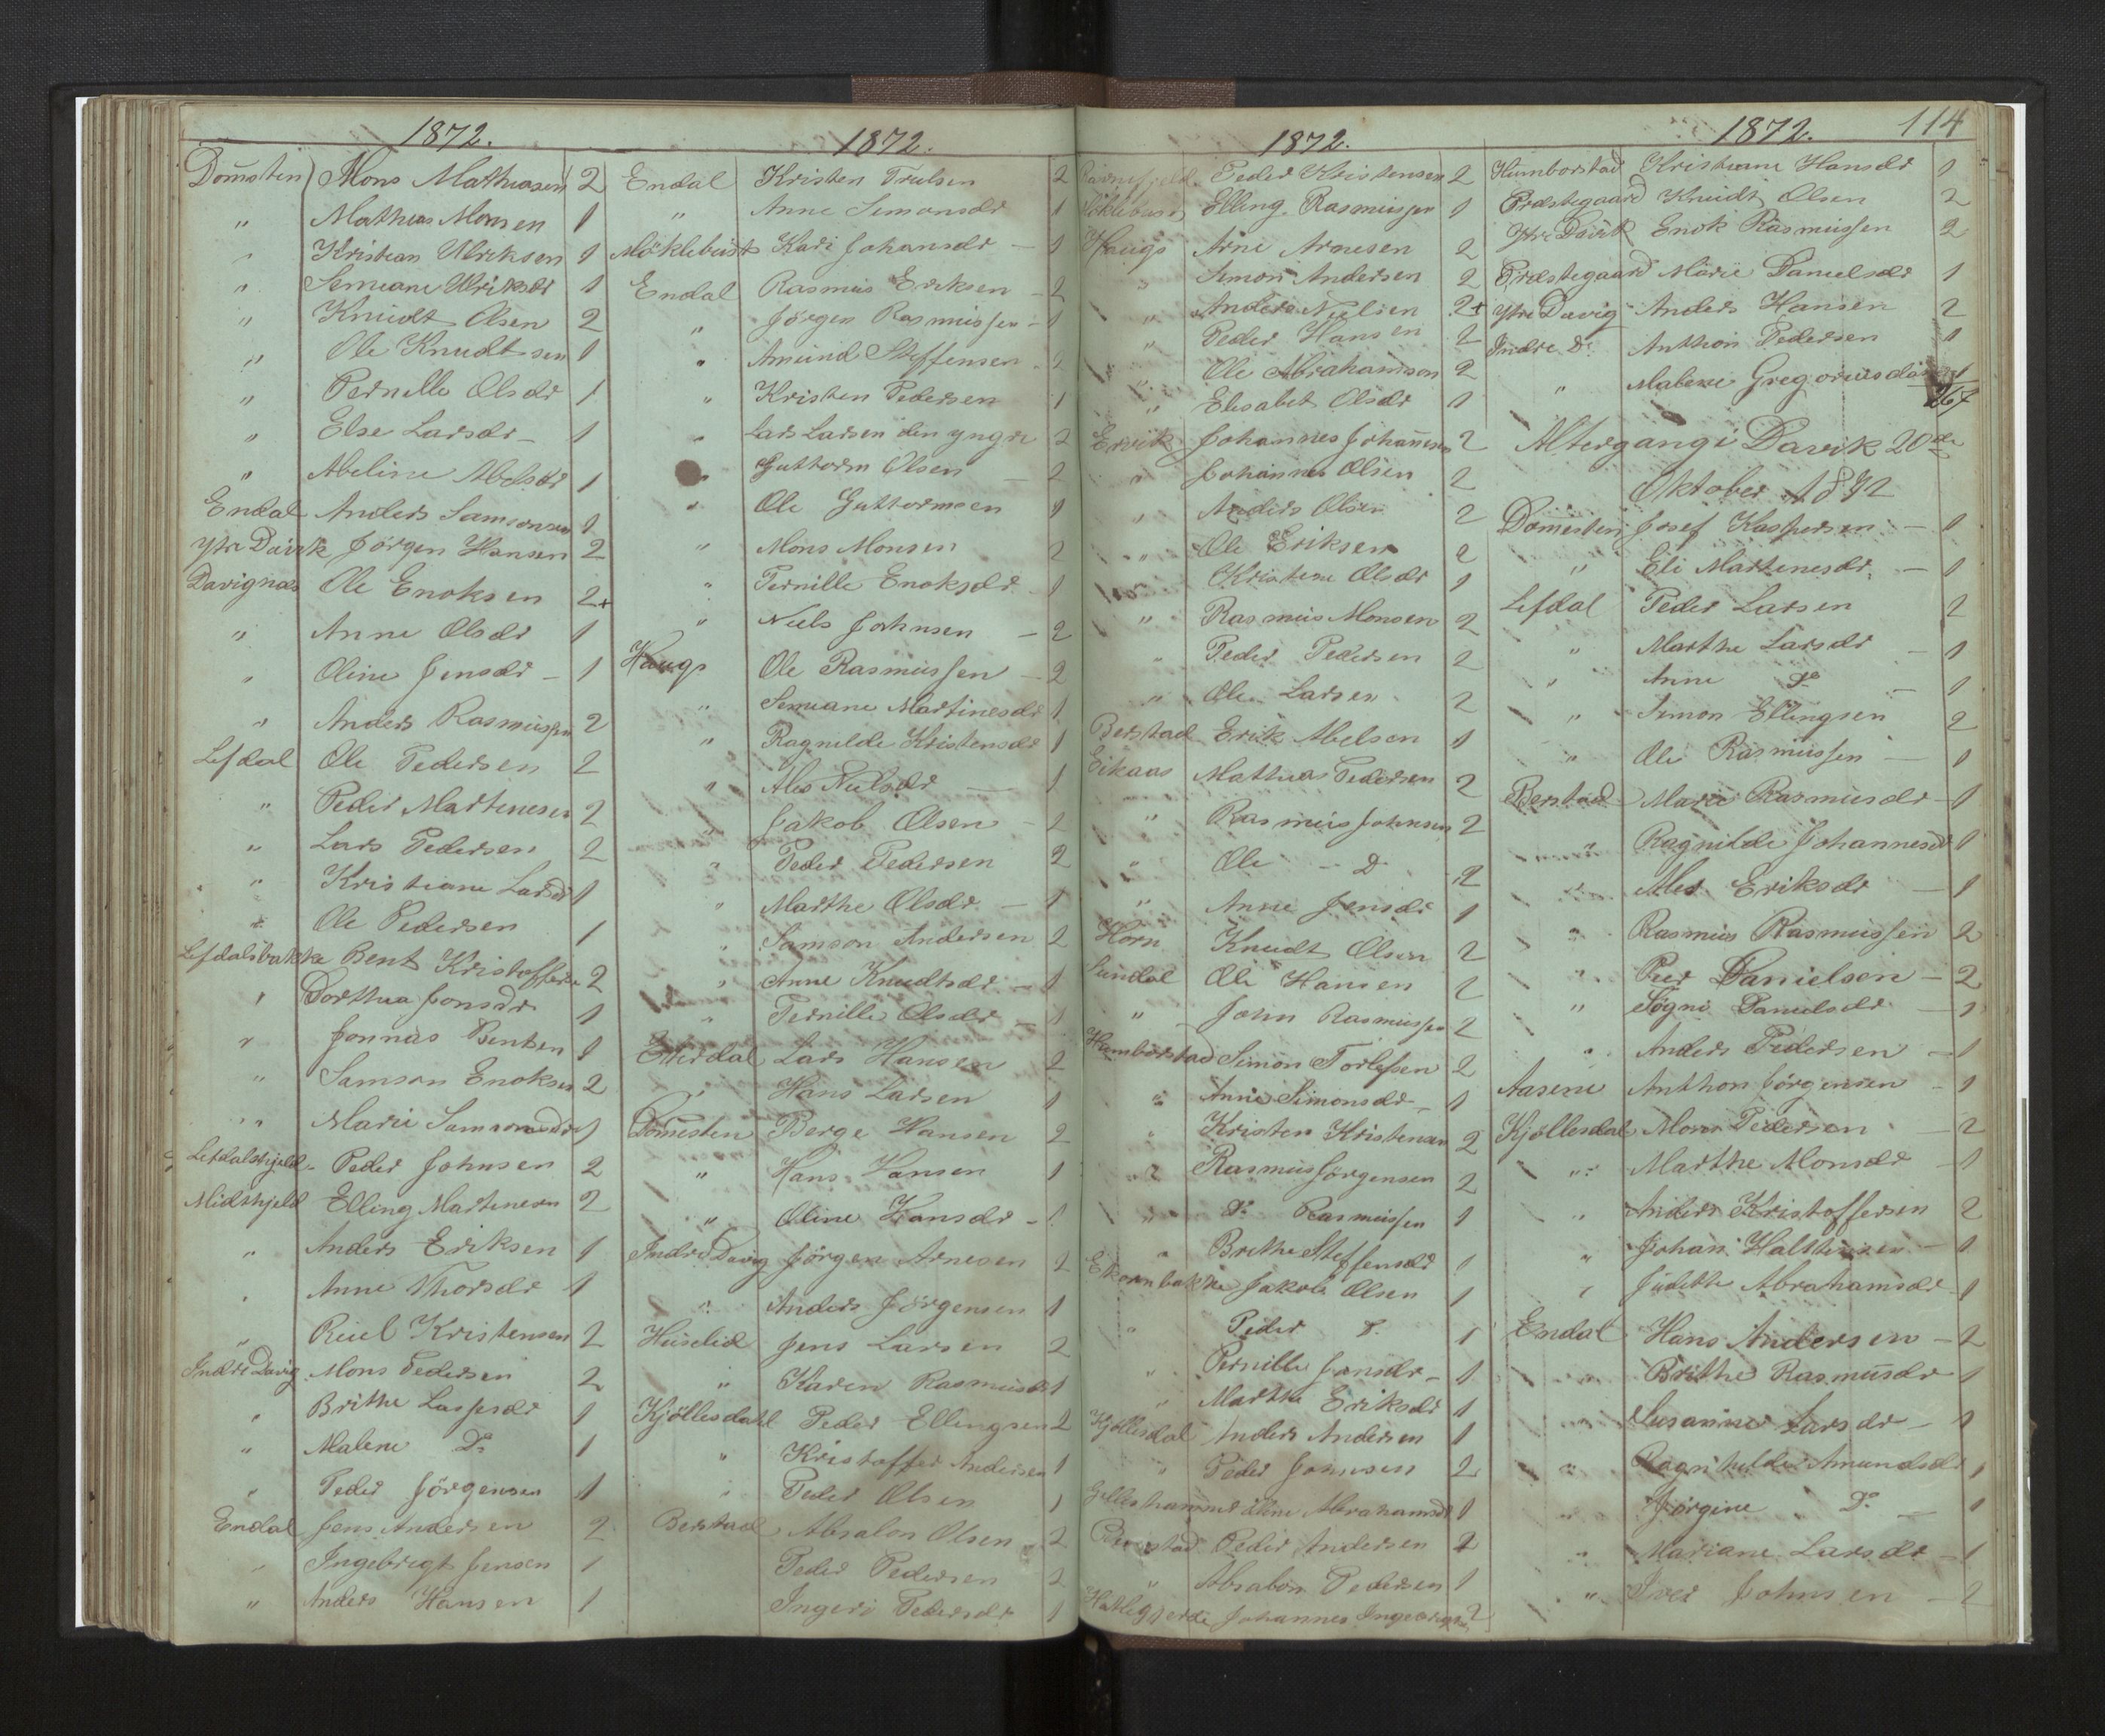 1872.
Domsten Mons Mathiasen 2
" Mathias Monsen 1
" Kristian Ulriksen 1
" Semiane Ulriksdr 1
" Knudt Olsen 2
" Ole Knudtsen 1
" Pernille Olsdr 1
" Else Larsdr - 1
" Abeline Abelsdr 1
Endal Anders Samsonsen 1
Ytre Davik Jörgen Hansen 2
Davignæs Ole Enoksen 2+
" Anne Olsdr 1
" Oline Jensdr - 1
" Anders Rasmussen 2
Lefdal Ole Pedersen 2
" Peder Martenesen 2
" Lars Pedersen 2
" Kristiane Larsdr 1
" Ole Pedersen 1
Lefdalsbakke Bent Kristoffersen 2
" Dorthea Jonsdr 1
" Jonnas Bentsen 1
" Samson Enoksen 2
" Marie Samsonsdr 1
Lefdalskjeld Peder Johnsen 2
Midskjeld Elling Martinesen 2
" Anders Eriksen 1
" Anne Thorsdr 1
" Reiel Kristensen 2
Indre Davig Mons Pedersen 2
" Brithe Lassesdr 1
" Malene Do 1
" Peder Jörgensen 1
Endal Jens Andersen 2
" Ingebrigt Jensen 1
" Anders Hansen 1
1872.
Endal Kristen Trulsen 2
" Anne Simonsdr 1
Möklebust Kari Johansdr - 1
Endal Rasmus Eriksen - 2
" Jörgen Rasmussen - 1
" Amund Steffensen - 2
" Kristen Pedersen 1
" Lars Larsen den yngre 2
" Guttorm Olsen - 2
" Ole Guttormsen 1
" Mons Monsen 2
" Pernille Enoksdr 1
" Niels Johnsen - 2
Haugs Ole Rasmussen - 2
" Semiane Martinesdr 1
" Ragnilde Kristensdr 1
" Ales Nielsdr - 1
" Jakob Olsen - 2
" Peder Pedersen 2
" Marthe Olsdr - 1
" Samson Andersen 2
" Anne Knudtsdr - 1
" Pernille Olsdr - 1
Eiterdal Lars Hansen 2
" Hans Larsen 1
Domesten Berge Hansen 2
" Hans Hansen 1
" Oline Hansdr - 1
Indre Davig Jörgen Arnesen 2
" Anders Jörgensen 1
Huselid Jens Larsen 2
" Karen Rasmusdr 1
Kjöllesdahl Peder Ellingsen 2
" Kristoffer Andersen 1
" Peder Olsen 1
Berstad Absalon Olsen 2
Peder Pedersen 2
Ingeri Pedersdr 1
1872.
Peder Kristensen 2
Elling Rasmussen 1
Haugs Arne Arnesen 2
" Simon Andersen 2
" Anders Nielsen 2+
" Peder Hansen 2
" Ole Abrahamson 2
" Elisabet Olsdr 1
Ervik Johannes Johannesen 2
" Johannes Olsen 2
" Anders Olsen 2
" Ole Eriksen 2
" Kristine Olsdr 1
" Rasmus Monsen 2
" Peder Pedersen 2
" Ole Larsen 2
Berstad Erik Abelsen 1
Eikaas Mathias Pedersen 2
" Rasmus Johnsen 2
" Ole - Do 2
" Anne Jensdr 1
Horn Knudt Olsen 2
Sundal Ole Hansen 2
" John Rasmussen 2
Humborstad Simon Torlefsen 2
" Anne Simonsdr - 1
" Kristen Kristensen 2
" Rasmus Jörgensen 2
" Do Rasmussen 1
" Brithe Steffensdr 1
Ekornbakke Jakob Olsen 1
" Peder Do 1
" Pernille Jonsdr - 1
" Marthe Eriksdr 1
Kjöllesdal Anders Andersen 1
" Peder Johnsen 2
Oline Abrahamsdr 1
Berstad Peder Andersen 2
" Absalon Pedersen 1
Johannes Ingebrigtsen 2
1872. 114
Humborstad Kristiane Hansdr 1
Præstegaard Knudt Olsen 2
Ytre Davik Enok Rasmussen 2
Præstegaard Marie Danielsdr 1
Ytre Davig Anders Hansen 2
Indre Do Anthon Pedersen 1
" Malene Gregoriusdr 1
267
Altergang i Davik 20de
Oktober 1872
Domesten Josef Kaspersen - 1
" Eli Martinesdr - 1
Lefdal Peder Larsen 2
" Marthe Larsdr - 1
" Anne Do - 1
" Simon Ellingsen 2
" Ole Rasmussen - 1
Berstad Marie Rasmusdr - 1
" Ragnilde Johannesdr 1
" Ales Eriksdr - 1
" Rasmus Rasmussen 2
" Peer Danielsen - 2
" Sögni Danielsdr - 1
" Anders Pedersen - 1
Aasene Anthon Jörgensen - 1
Kjöllesdal Mons Pedersen - 2
" Marthe Monsdr - 1
" Anders Kristoffersen 2
" Johan Halstensen - 1
" Judithe Abrahamsdr - 1
Endal Hans Andersen - 2
" Brithe Rasmusdr 1
" Susanne Larsdr - 1
" Ragnhilde Amundsdr 1
" Jörgine Do - 1
" Mariane Larsdr - 1
" Iver Johnsen - 2